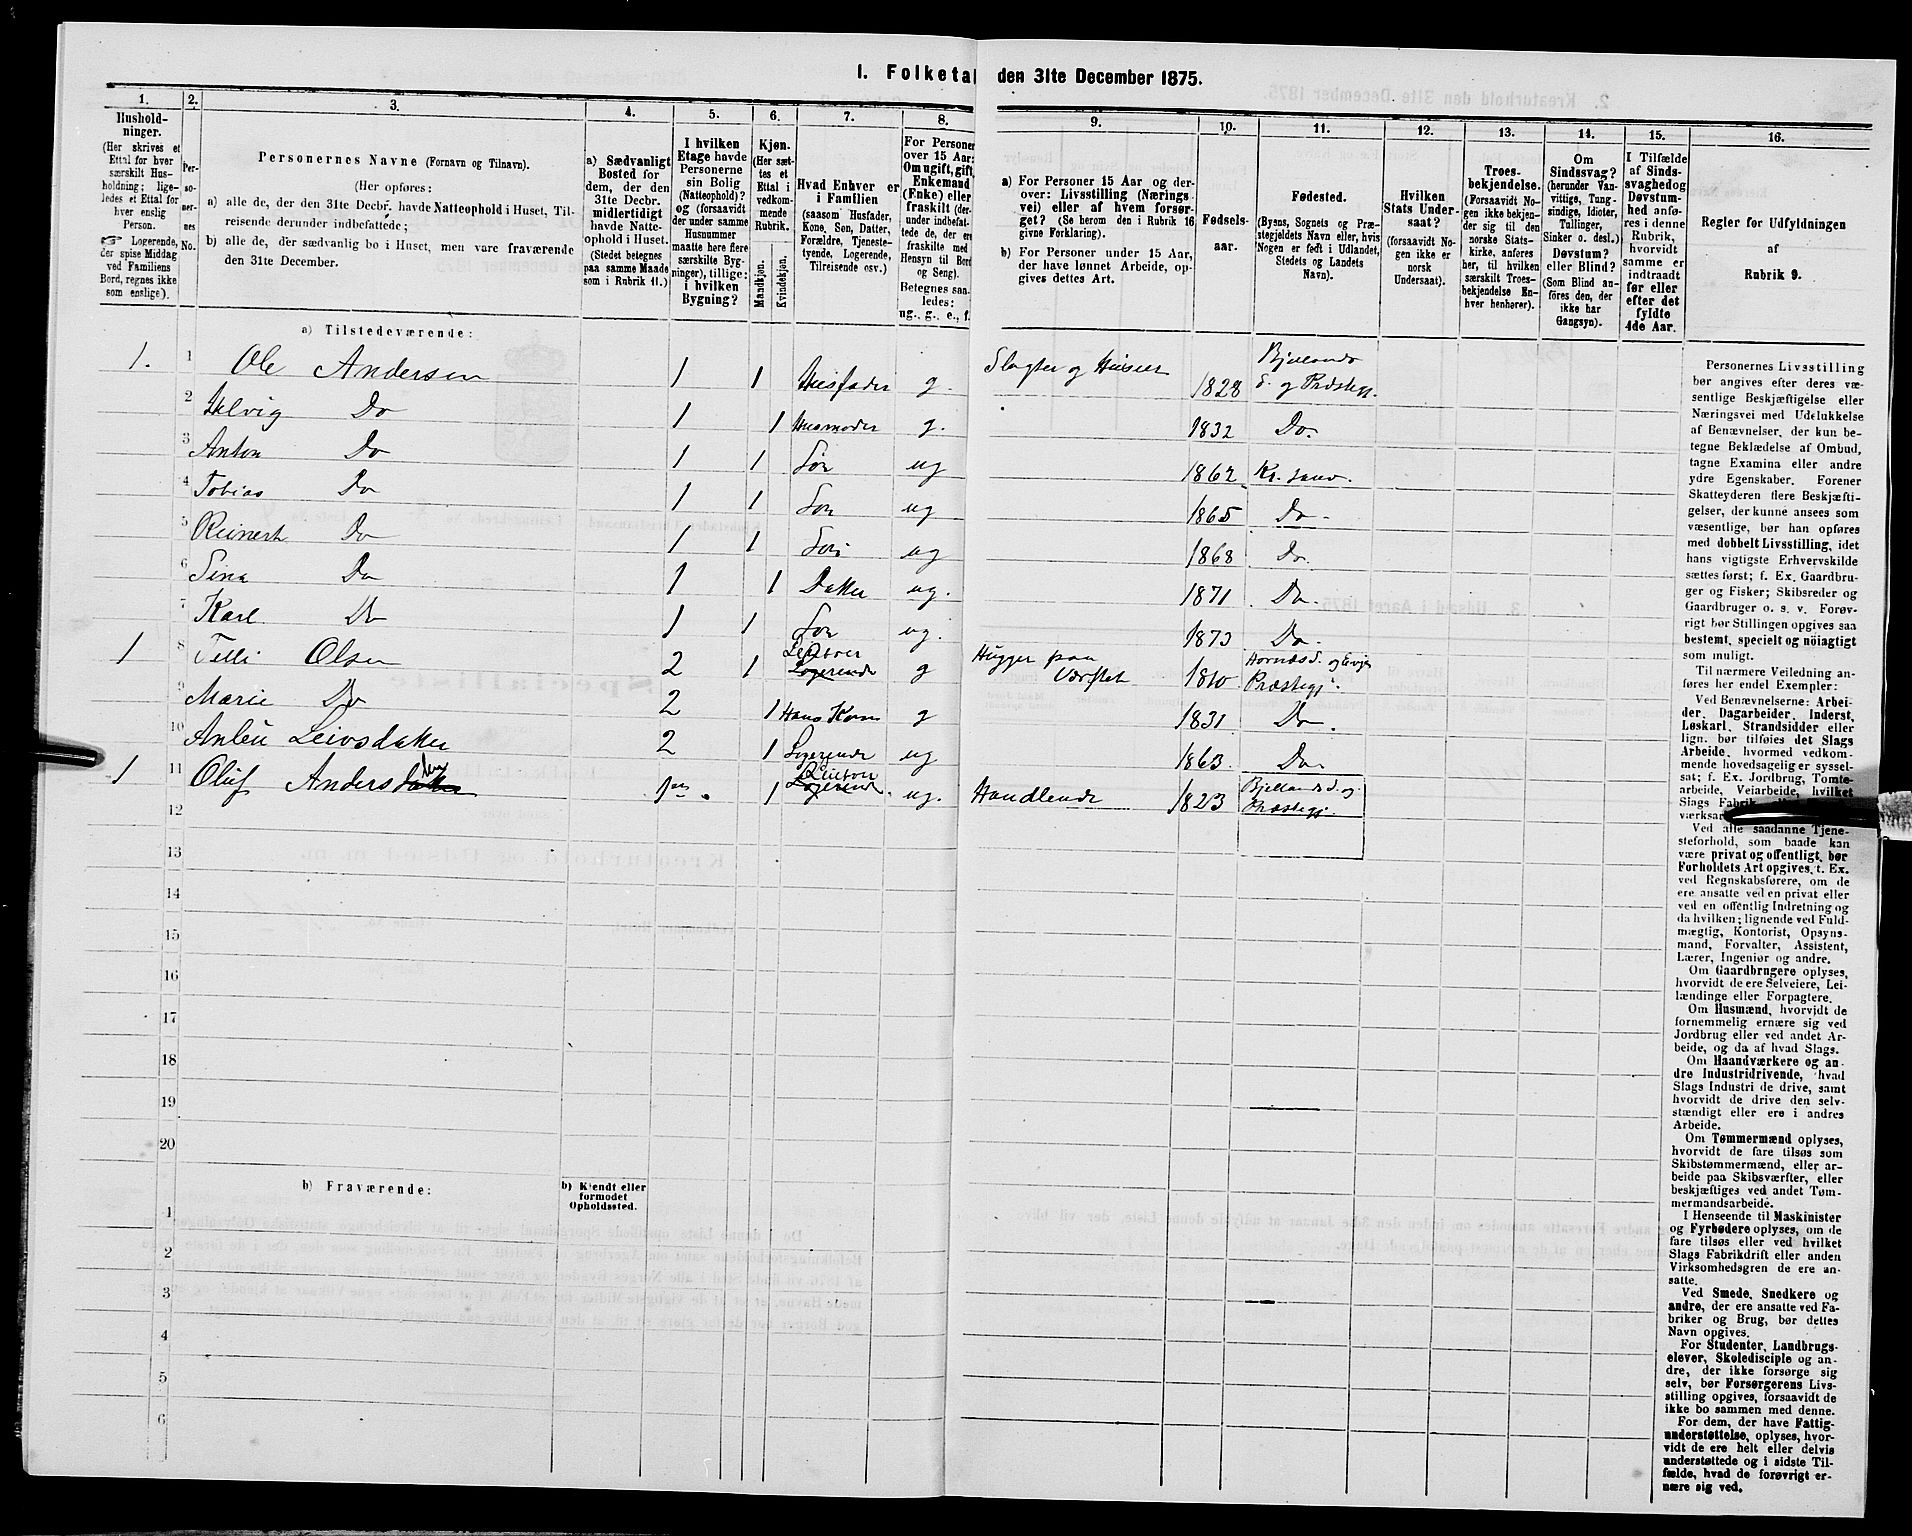 I. Folketal den 31te December 1875.
1. 2. 3. 4. 5. 6. 7. 8. 9. 10. 11. 12. 13. 14. 15. 16.
Hushold-
ninger.
(Her skrives et
Ettal for hver
særskilt Hus-
holdning; lige-
ledes et Ettal for
hver enslig
Person.
☞ Logerende,
der spise Middag
ved Familiens
Bord, regnes ikke
som enslige).
Per-
so-
ner-
nes
No.
Personernes Navne (Fornavn og Tilnavn).
(Her opføres:
a) alle de, der den 31te Decbr. havde Natteophold i Huset, Til-
reisende derunder indbefattede;
b) alle de, der sædvanlig bo i Huset, men vare fraværende
den 31te December.
a) Sædvanligt
Bosted for
dem, der den
31te Decbr.
midlertidigt
havde Natte-
ophold i Huset.
(Stedet betegnes
paa samme Maade
som i Rubrik 11.)
I hvilken
Etage havde
Personerne
sin Bolig
(Natteophold)?
og (forsaavidt
der under samme
Husnummer
maatte høre flere
særskilte Byg-
ninger), tillige:
i hvilken
Bygning?
Kjøn.
(Her sæt-
tes et
Ettal i
vedkom-
mende
Rubrik.
Mandkjøn.
Kvindekjøn.
Hvad Enhver er
i Familien
(saasom Husfader,
Kone, Søn, Datter,
Forældre, Tjeneste-
tyende, Logerende,
Tilreisende osv.)
For Personer
over 15 Aar:
Om ugift, gift,
Enkemand
(Enke) eller
fraskilt (der-
under indbefat-
tede de, der ere
fraskilte med
Hensyn til Bord
og Seng).
Betegnes saa-
ledes:
ug., g., e., f.
a) For Personer 15 Aar og der-
over: Livsstilling (Nærings-
vei) eller af hvem forsør-
get? (Se herom den i Rubrik 16
givne Forklaring).
b) For Personer under 15 Aar,
der have lønnet Arbeide, op-
gives dettes Art.
Fødsels-
aar.
Fødested.
(Byens, Sognets og Præ-
stegjeldets Navn eller, hvis
Nogen er født i Udlandet,
Stedets og Landets
Navn).
Hvilken
Stats Under-
saat?
(forsaavidt No-
gen ikke er
norsk
Undersaat).
Troes-
bekjendelse.
(Forsaavidt No-
gen ikke bekjen-
der sig til den
norske Stats-
kirke, anføres
her, til hvilken
særskilt Troes-
bekjendelse En-
hver henhører).
Om
Sindssvag?
(herunder Van-
vittige, Tung-
sindige, Idioter,
Tullinger,
Sinker o. desl.)
Døvstum?
eller Blind?
(Som Blind an-
føres den, der
ikke har
Gangsyn).
I Tilfælde
af Sinds-
svaghed og
Døvstum-
hed anfø-
res i denne
Rubrik,
hvorvidt
samme er
indtraadt
før eller
efter det
fyldte
4de Aar.
Regler for Udfyldningen
af
Rubrik 9.
a) Tilstedeværende:
1. 1 Ole Andersen 1 1 Husfader g. Slagter og Huseier 1828 Bjellands S. og Præstegj.
2 Helvig Do 1 1 Husmoder g. 1832 Do.
3 Anton Do 1 1 Søn ug 1862 Kr. sand.
4 Tobias Do 1 1 Søn ug 1865 Do.
5 Reinert Do 1 1 Søn ug 1868 Do.
6 Sina Do 1 1 Datter ug. 1871 Do.
7 Karl Do 1 1 Søn ug. 1873 Do.
1 8 Telli Olsen 2 1 Logerende g Hugger paa Værftet 1810 Hornnæs S. og Evje Præstegj.
9 Marie Do 2 1 Hans Kone g 1831 Do.
10 Leivsdatter 2 1 Logerende ug 1863 Do.
1 11 Oluf Anders 1 Logerende ug. Handlende 1823 Bjellands S. og Præstegj.
12
13
14
15
16
17
18
19
20
b) Fraværende:
b) Kjendt eller
formodet
Opholdssted.
1
2
3
4
5
6
Personernes Livsstilling
bør angives efter deres væ-
sentlige Beskjæftigelse eller
Næringsvei med Udelukkelse
af Benævnelser, der kun be-
tegne Beklædelse af Ombud,
tagne Examina eller andre
ydre Egenskaber. Forener
Skatteyderen flere Beskjæfti-
gelser, der kunne ansees som
væsentlige, bør han opføres
med dobbelt Livsstilling, idet
hans vigtigste Erhvervskilde
sættes først; f. Ex. Gaardbru-
ger og Fisker; Skibsreder og
Gaardbruger o. s. v. Forøv-
rigt bør Stillingen opgives saa
bestemt, specielt og nøiagtigt
som muligt.
Til nærmere Veiledning an-
føres her endel Exempler:
Ved Benævnelserne: Arbei-
der, Dagarbeider, Inderst,
Løskarl, Strandsidder eller
lign. bør tilføies det Slags
Arbeide, hvormed vedkom-
mende hovedsagelig er syssel-
sat; f. Ex. Jordbrug, Tomte-
arbeide, Veiarbeide, hvilket
Slags
Ved alle saadanne Tjene-
steforhold, som baade kan
være privat og offentligt, bør
Forholdets Art opgives, t. Ex.
ved Regnskabsførere, om de
ere ansatte ved en privat eller
ved en offentlig Indretning og
da hvilken; lignende ved Fuld-
mægtig, Kontorist, Opsyns-
mand, Forvalter, Assistent,
Lærer, Ingeniør og andre.
Om Gaardbrugere oplyses,
hvorvidt de ere Selveiere, Lei-
lændinge eller Forpagtere.
Om Husmænd, hvorvidt de
fornemmelig ernære sig ved
Jordbrug eller ved andet Ar-
beide, og da af hvad Slags.
Om Haandværkere og an-
dre Industridrivende, hvad
Slags Industri de drive, samt
hvorvidt de drive den selv-
stændigt eller ere i andres
Arbeide.
Om Tømmermænd oplyses,
hvorvidt de fare tilsøs som
Skibstømmermænd, eller ar-
beide paa Skibsværfter, eller
beskjæftiges ved andet Tøm-
mermandsarbeide.
I Henseende til Maskinister
og Fyrbødere oplyses, om de
fare tilsøs eller ved hvilket
Slags Fabrikdrift eller anden
Virksomhedsgren de ere an-
satte.
Ved Smede, Snedkere og
andre, der ere ansatte ved Fa-
briker og Brug, bør dettes
Navn opgives.
For Studenter, Landbrugs-
elever, Skoledisciple og an-
dre, der ikke forsørge sig
selv, bør Forsørgerens Livs-
stilling opgives, forsaavidt de
ikke bo sammen med denne.
For dem, der have Fattig-
understøttelse, oplyses, hvor-
vidt de ere helt eller delvis
understøttede og i sidste Til-
fælde, hvad de forøvrigt er-
nære sig ved.